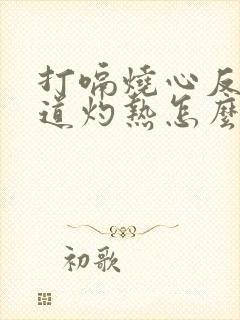 打嗝燒心反
道灼熱怎麼
初歌